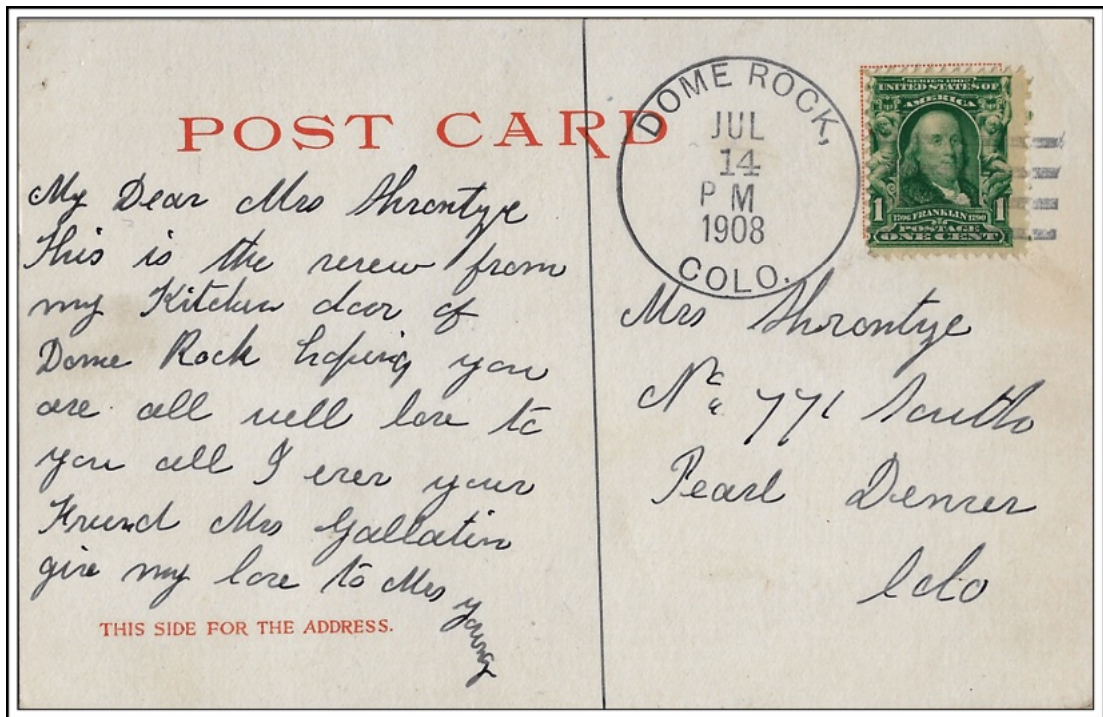 POST CARD
My Dear Mrs Shrontye
this is the rerew from
my Kitchen door of
Dome Rock hoping you
are all well love to
you all I ever your
Friend Mrs Gallatin
give my love to Mrs
young
THIS SIDE FOR THE ADDRESS.
DOME ROCK,
JUL
14
P M
1908
COLO.
SERIES 1902
UNITED STATES OF
AMERICA
1 1706 FRANKLIN 1790 1
POSTAGE
ONE CENT
Mrs Shrontye
No 771 South
Pearl Denver
Colo